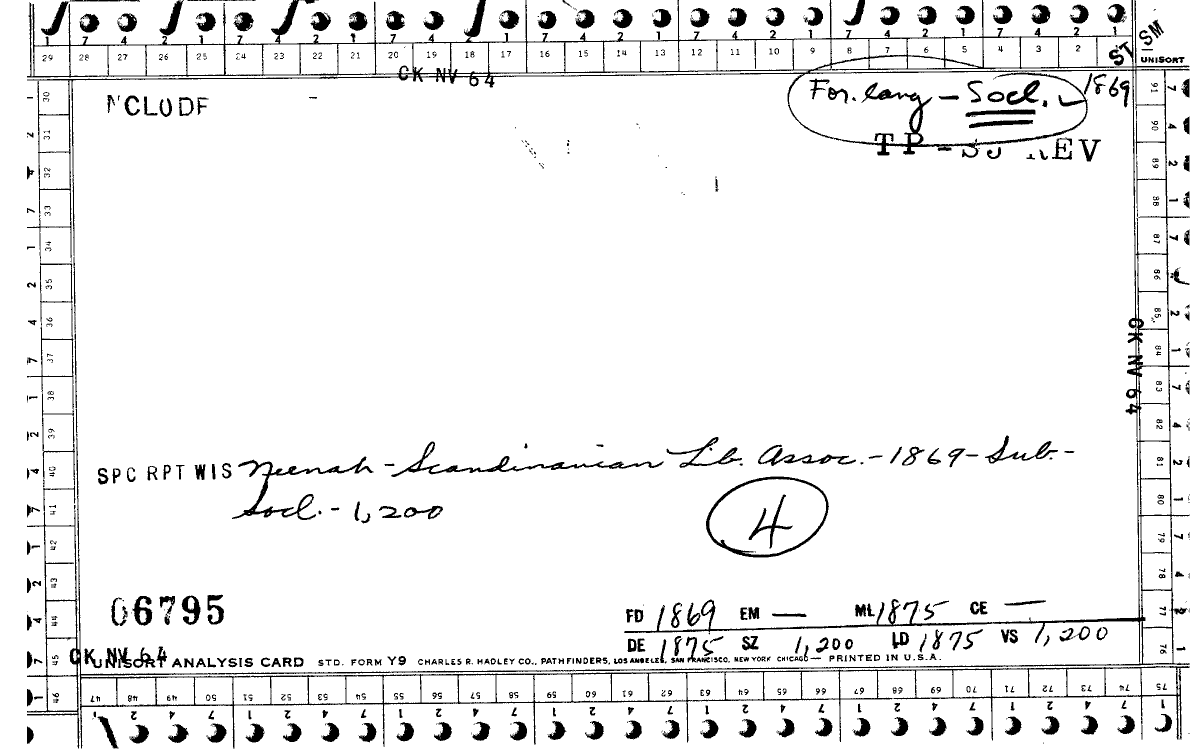 1 7 4 2 1 7 4 2 1 7 4 2 1 7 4 2 1 7 4 2 1 7 4 2 1 7 4 2
29 28 27 26 25 24 23 22 21 20 19 18 17 16 15 14 13 12 11 10 9 8 7 6 5 4 3 2
ST SM
UNISORT
CK NV 64
NCLODF
For. lang — Socl. 1869
TP - REV
30 31 32 33 34 35 36 37 38 39 40 41 42 43 44 45 46
91 90 89 88 87 86 85 84 83 82 81 80 79 78 77 76
CK NV 64
SPC RPT WIS Neenah - Scandinavian Lib. Assoc. - 1869 - Sub. -
Socl. - 1,200
4
06795
FD 1869 EM — ML 1875 CE —
DE 1875 SZ 1,200 LD 1875 VS 1,200
CK NV 64
UNISORT ANALYSIS CARD STD. FORM Y9 CHARLES R. HADLEY CO., PATHFINDERS, LOS ANGELES, SAN FRANCISCO, NEW YORK CHICAGO — PRINTED IN U.S.A.
47 48 49 50 51 52 53 54 55 56 57 58 59 60 61 62 63 64 65 66 67 68 69 70 71 72 73 74 75